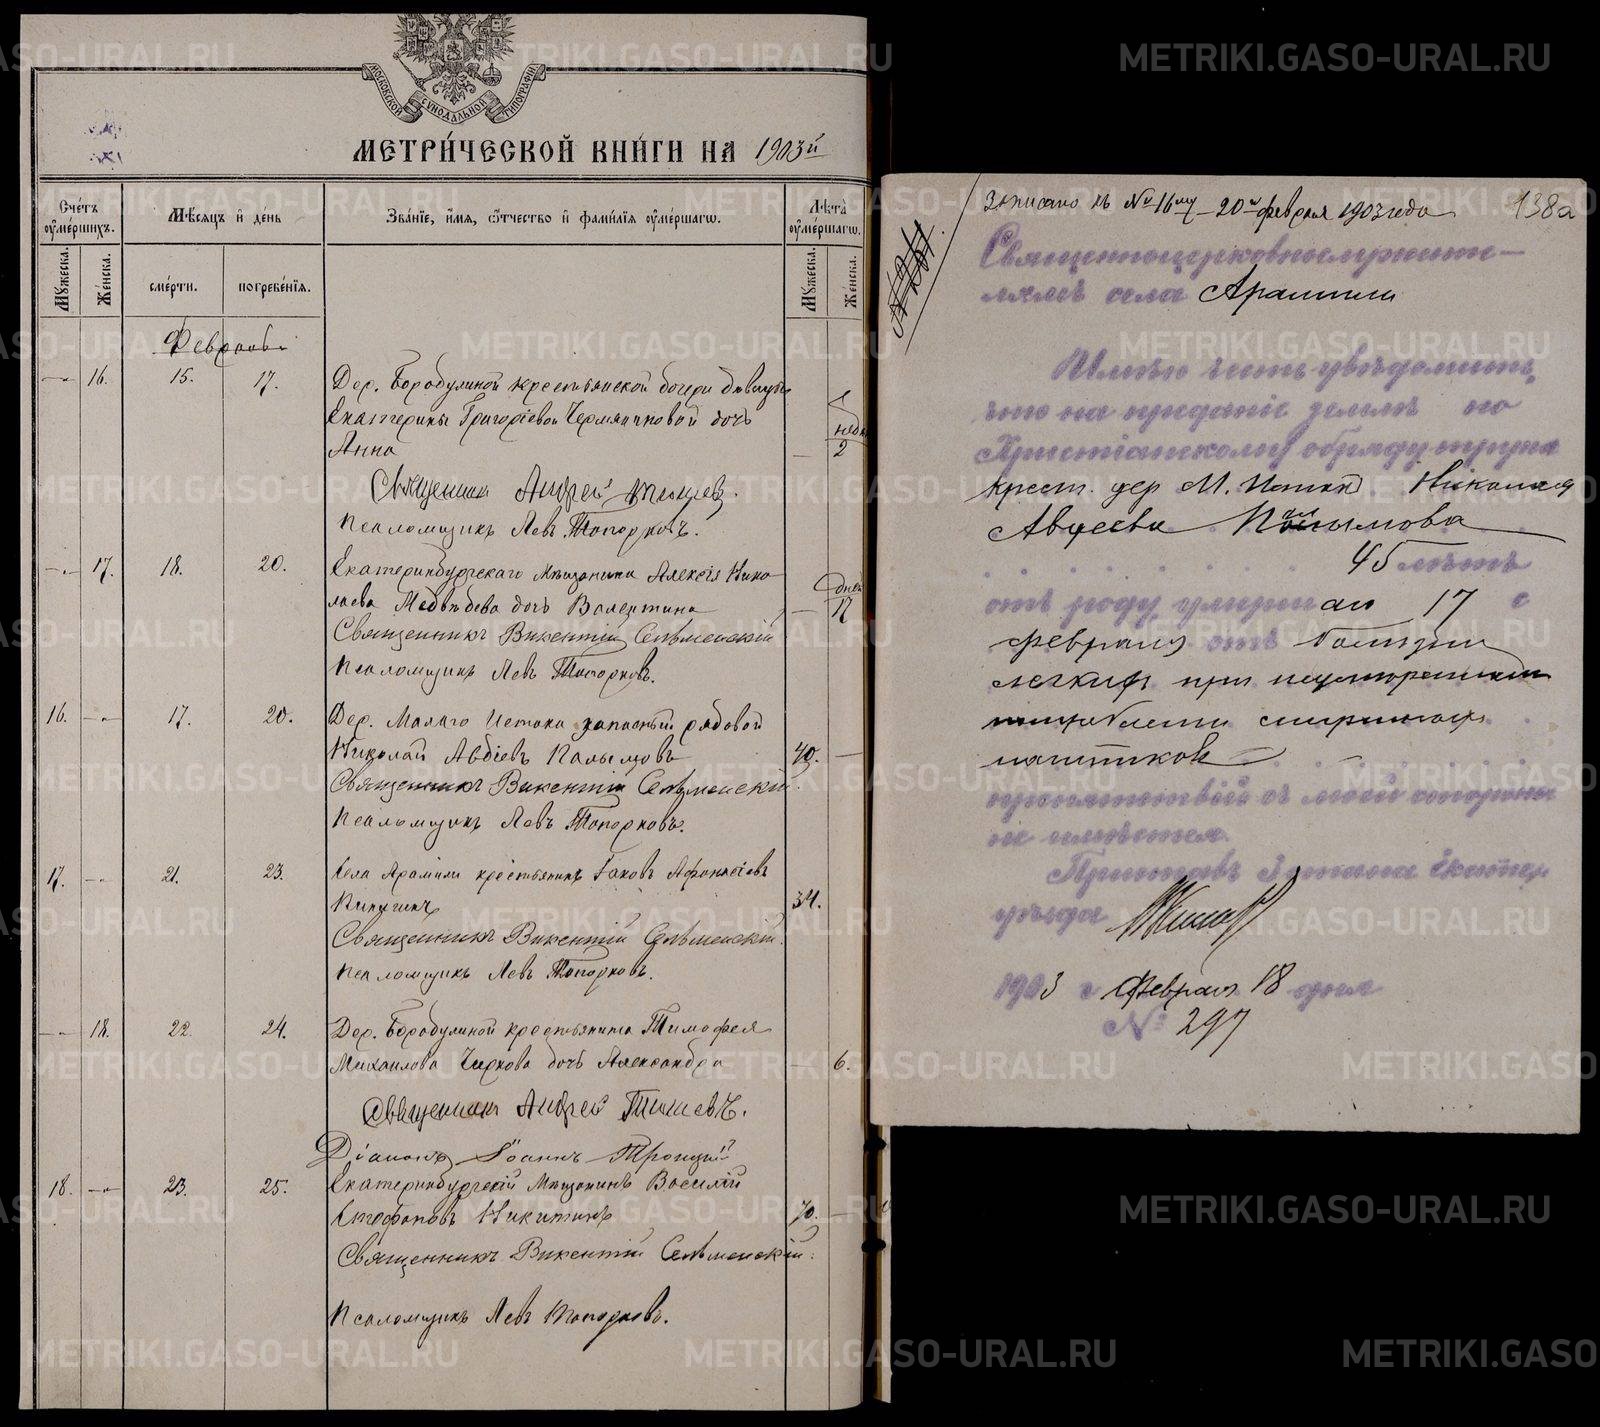 МОСКОВСКОЙ СѴНОДАЛЬНОЙ ТИПОГРАФІИ
МЕТРИ́ЧЕСКОЙ КНИ́ГИ НА 1903й
Сче́тъ ѹме́ршихъ.
Мѣ́сяцъ и де́нь
Зва́нїе, и҆́мя, ѻ҆́тчество и҆ фами́лїя ѹ҆ме́ршагѡ.
Лѣ́та ѹ҆ме́ршагѡ.
Мꙋ́жеска.
Же́нска.
сме́рти.
погребе́нїя.
Мꙋ́жеска.
Же́нска.
Февраль
16. 15. 17.
Дер. Бородулиной крестьянской дочери дѣвицы
Екатерины Григоріевой Чермяниновой дочь
Анна
недѣл
2
Священник Андрей
Псаломщикъ Левъ Топорковъ.
17. 18. 20.
Екатеринбургскаго мѣщанина Алексія Нико-
лаева Медвѣдева дочь Валентина
дней
17
Священникъ Викентій Сельменскій
Псаломщикъ Левъ Топорковъ.
16. 17. 20.
Дер. Малаго Истока запасный рядовой
Николай Авдіевъ Палымовъ
40.
Священникъ Викентій Сельменскій.
Псаломщикъ Левъ Топорковъ.
17. 21. 23.
Села Арамили крестьянинъ Іаковъ Афонасіевъ
34.
Священникъ Викентій Сельменскій.
Псаломщикъ Левъ Топорковъ.
18. 22. 24.
Дер. Бородулиной крестьянина Тимофея
Михаилова Чиркова дочь Александра
6.
Священник Андрей
Діаконъ Іоаннъ Троицкій
18. 23. 25.
Екатеринбургскій мѣщанинъ Василій
Стефановъ Никитинъ
70.
Священникъ Викентій Сельменскій.
Псаломщикъ Левъ Топорковъ.
138а
Записано въ № 16му 20го февраля 1903 года
Священноцерковнослужите-
лямъ села Арамили
Имѣю честь увѣдомить,
что на преданіе землѣ по
Христіанскому обряду трупа
крест. дер М. Истока Николая
Авдеева Палымова
45 лѣтъ
отъ роду, умершаго 17 с
февраля отъ болѣзни
легкихъ при неумеренном
потреблении спиртных
напитков
препятствій съ моей стороны
не имѣется.
Приставъ 2 стана Екатер
уѣзда
1903 г Февраля 18 дня
№ 297
METRIKI.GASO-URAL.RU